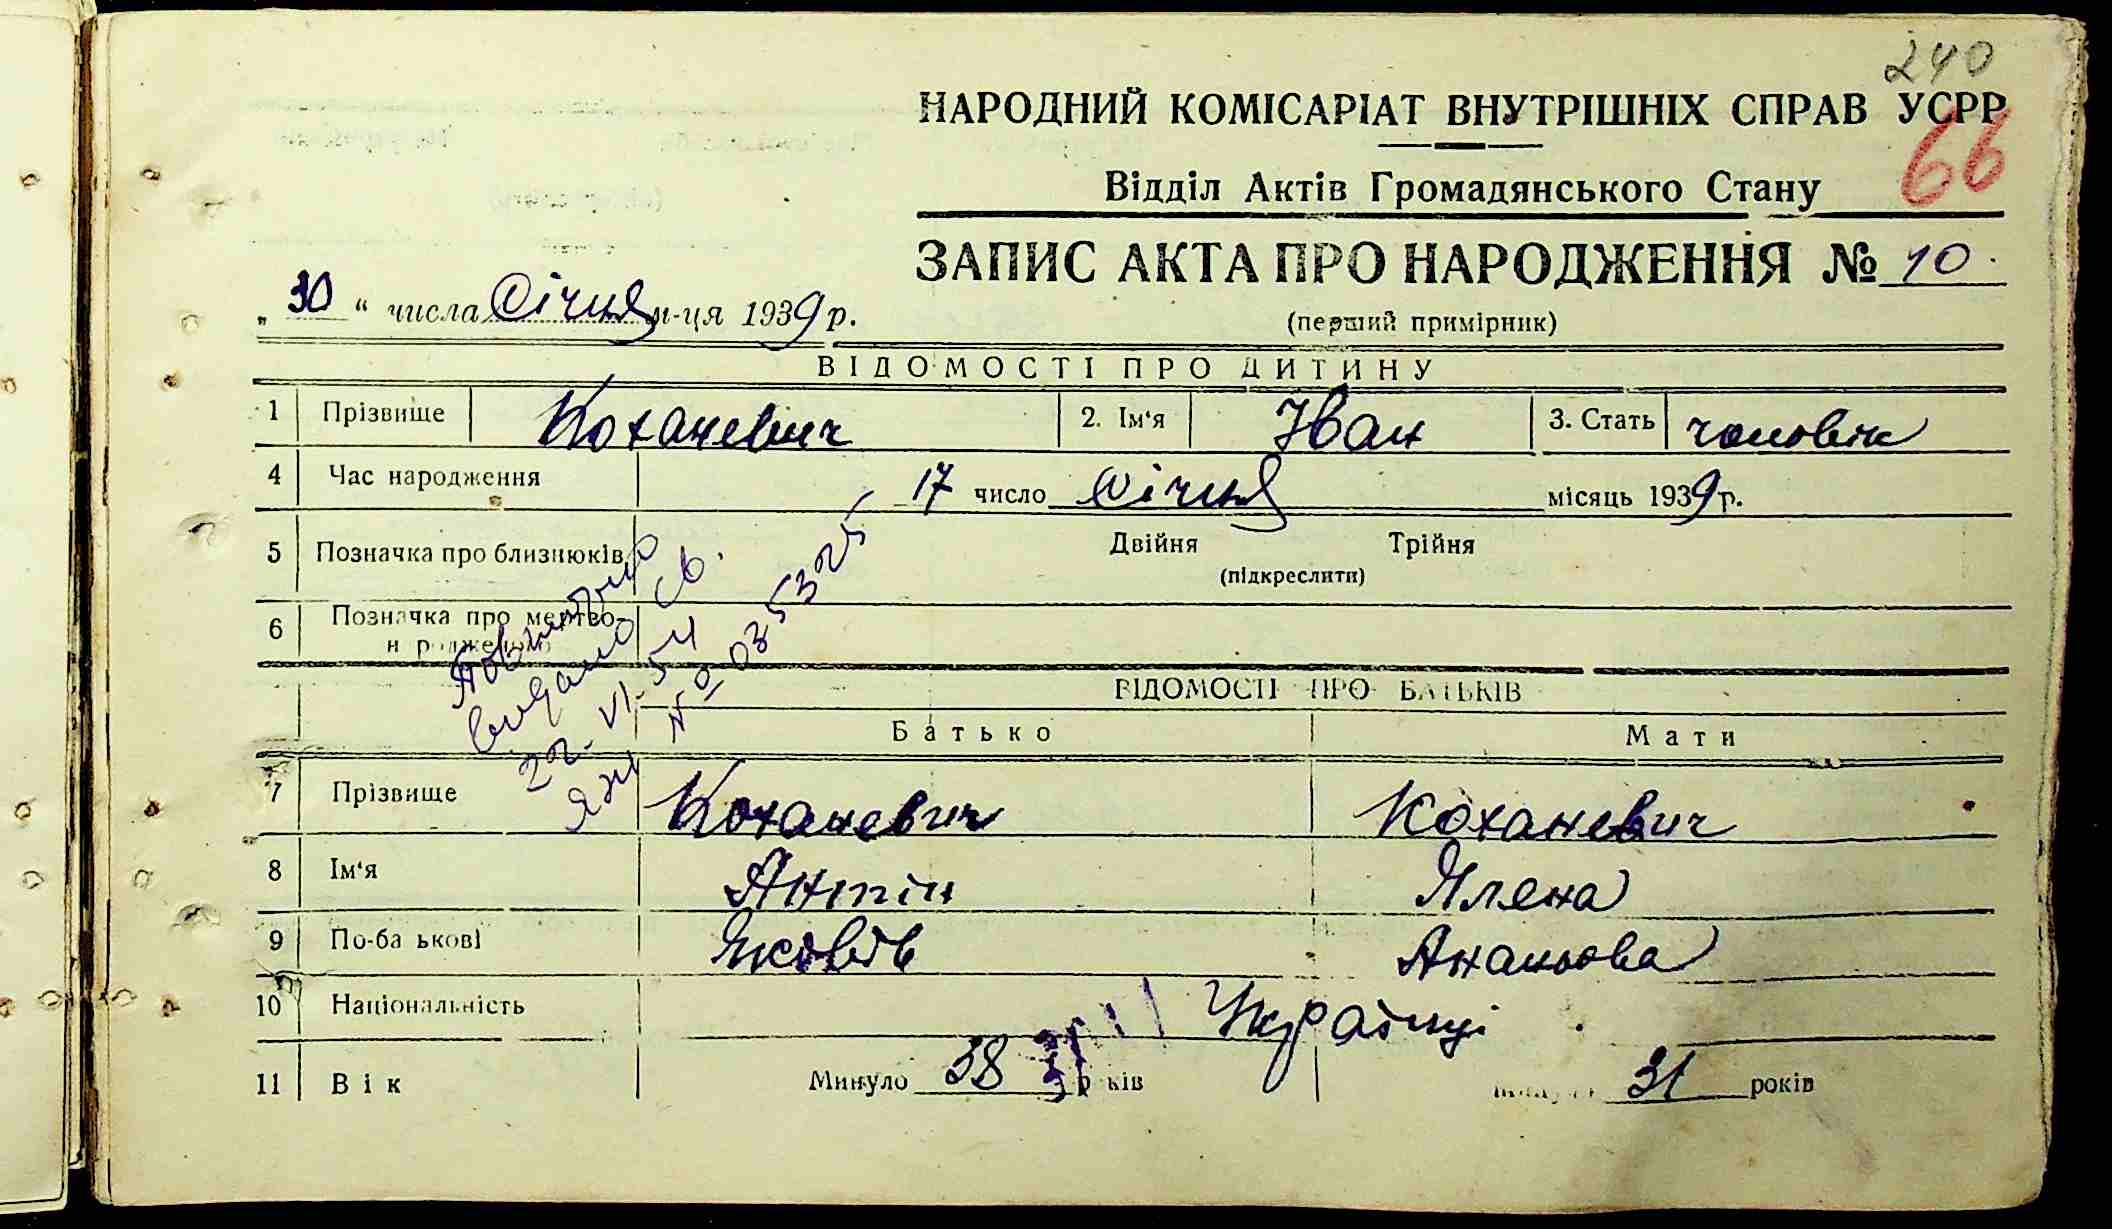 240
НАРОДНИЙ КОМІСАРІАТ ВНУТРІШНІХ СПРАВ УСРР
66
Відділ Актів Громадянського Стану
ЗАПИС АКТА ПРО НАРОДЖЕННЯ № 10
„30“ числа Січня м-ця 1939 р.
(перший примірник)
ВІДОМОСТІ ПРО ДИТИНУ
1 Прізвище Коханевич 2. Ім‘я Іван 3. Стать чоловік
4 Час народження 17 число Січня місяць 1939 р.
5 Позначка про близнюків Двійня Трійня
(підкреслити)
6 Позначка про мертво-
н родженого
Повторно
видано св.
22-VI-54
ЯЖ № 0353725
ВІДОМОСТІ ПРО БАТЬКІВ
Батько Мати
7 Прізвище Коханевич Коханевич
8 Ім‘я Антін Ялена
9 По-ба ькові Яковів Ананьова
10 Національність Українці
11 Вік Минуло 38 р ків 31 років